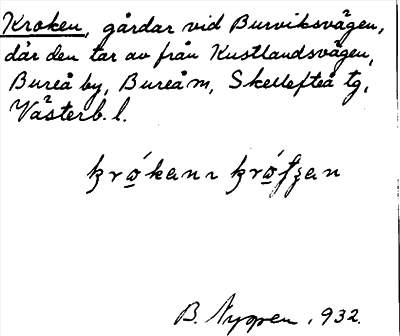 Kroken, gårdar vid Burviksvägen,
där den tar av från Kustlandsvägen,
Bureå by, Bureå m, Skellefteå tg,
Västerb. l.
B. Nyppen, 932.